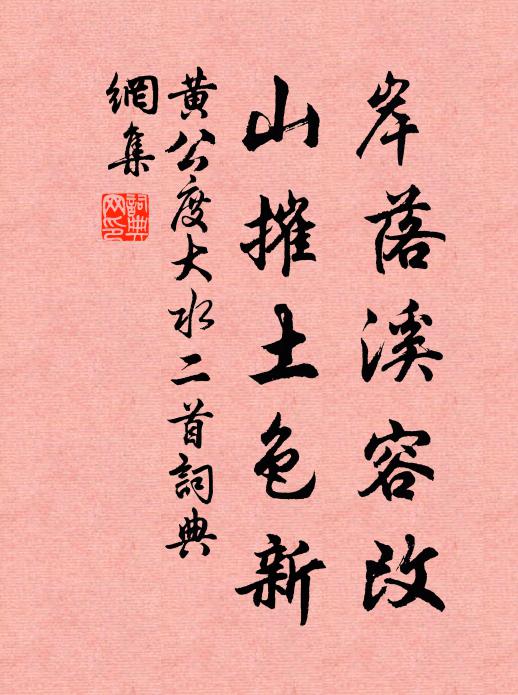 岸落溪容改
山摧土色新
黃公度大水二首詞典
網集
詞典
网印